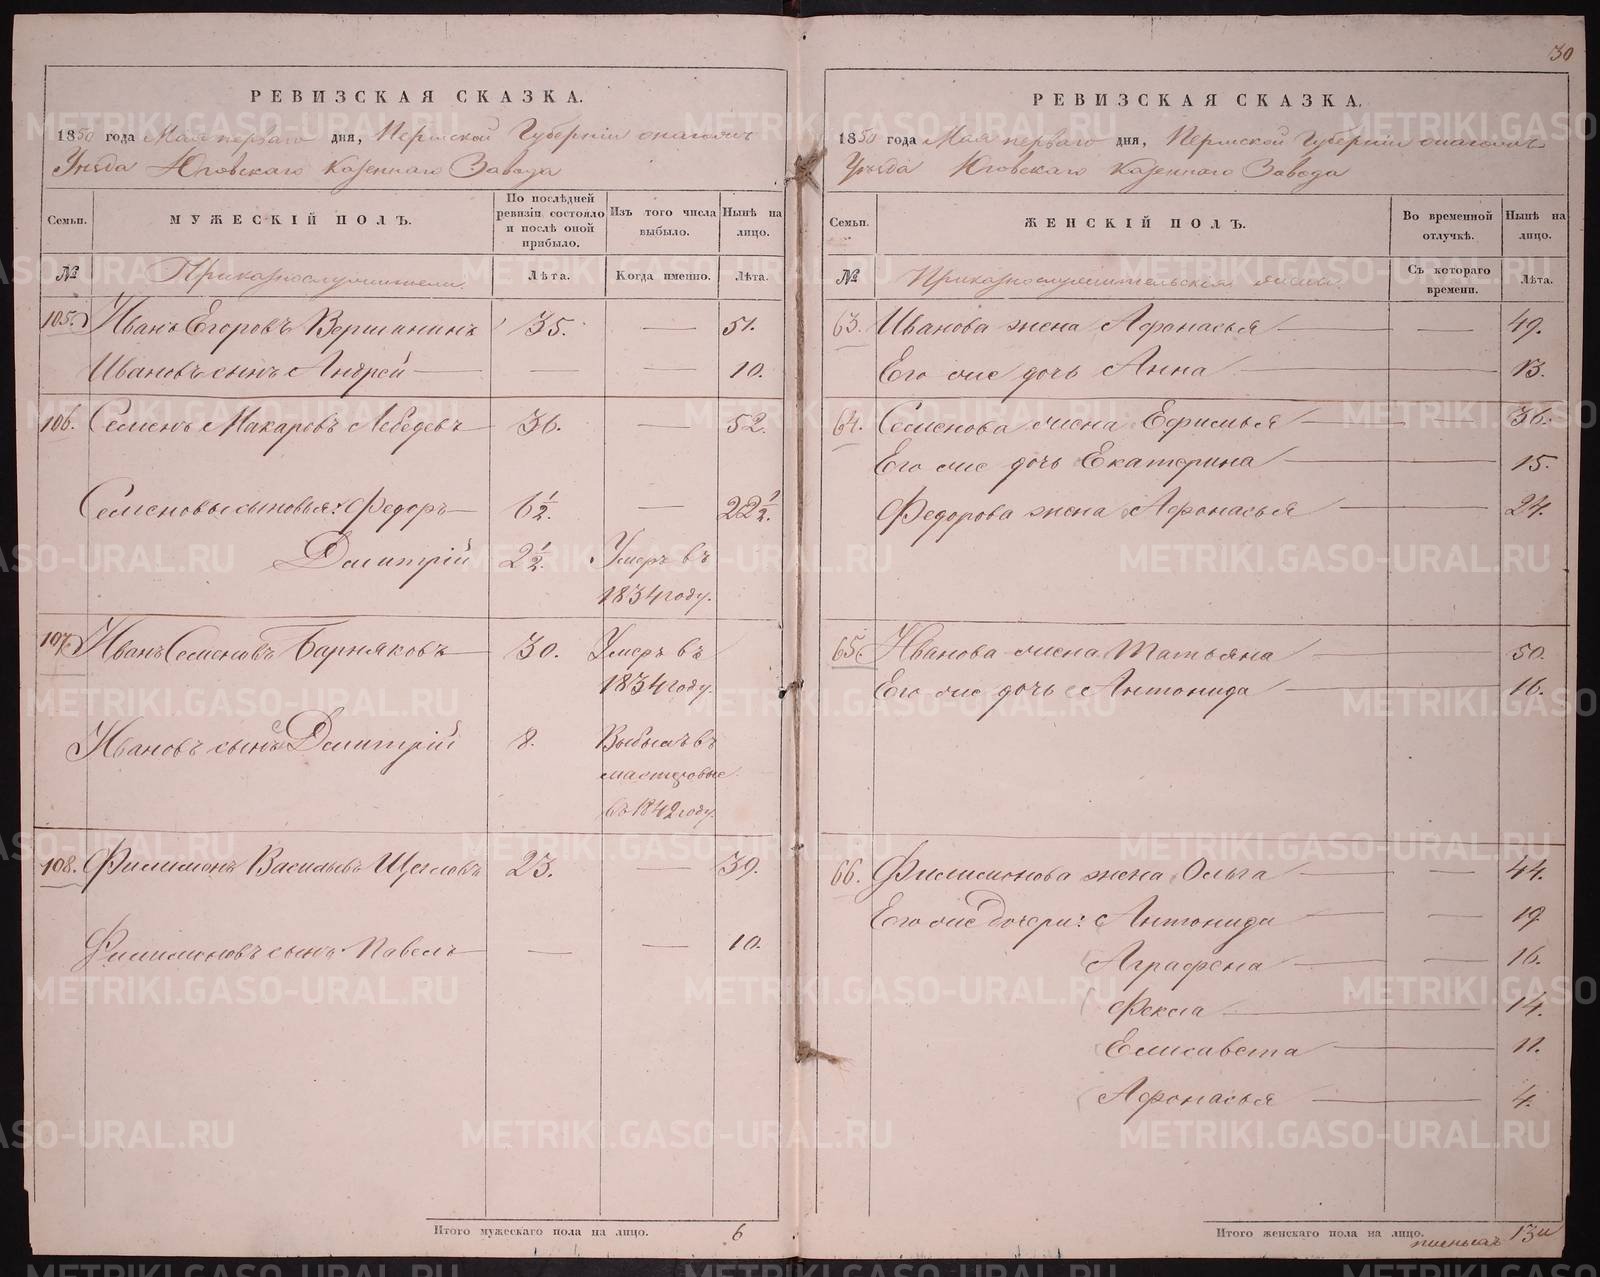 30
РЕВИЗСКАЯ СКАЗКА.
1850 года Мая перваго дня, Пермской Губернiи онагожъ
Уѣзда Юговскаго Казеннаго Завода
Семьи. МУЖЕСКIЙ ПОЛЪ. По послѣдней ревизiи состояло и послѣ оной прибыло. Изъ того числа выбыло. Нынѣ на лицо.
№ Приказнослужители Лѣта. Когда именно. Лѣта.
105. Иванъ Егоровъ 35. — 51.
Ивановъ сынъ Андрей — — 10.
106. Семенъ Макаровъ Лебедевъ 36. — 52.
Семеновы сыновья: Федоръ 6½. — 22½.
Дмитрiй 2½. Умеръ въ
1834 году.
107. Иванъ Семеновъ Барняковъ 30. Умеръ въ
1834 году.
Ивановъ сынъ Дмитрiй 8. Выбылъ въ
мастеровые
въ 1842 году.
108. Филимонъ Васильевъ Щегловъ 23. — 39.
Филимоновъ сынъ Павелъ — — 10.
Итого мужескаго пола на лицо. 6
РЕВИЗСКАЯ СКАЗКА.
1850 года Мая перваго дня, Пермской Губернiи онагожъ
Уѣзда Юговскаго Казеннаго Завода
Семьи. ЖЕНСКIЙ ПОЛЪ. Во временной отлучкѣ. Нынѣ на лицо.
№ Приказнослужительскiя жены Съ котораго времени. Лѣта.
63. Иванова жена Афонасья — 49.
Его же дочь Анна 13.
64. Семенова жена Ефимья — 36.
Его же дочь Екатерина 15.
Федорова жена Афонасья 24.
65. Иванова жена Татьяна 50.
Его же дочь Антонида 16.
66. Филимонова жена Ольга — 44.
Его же дочери: Антонида — 19
Аграфена — 16.
Фекла 14.
Елисавета 11.
Афонасья 4.
Итого женскаго пола на лицо. 13
METRIKI.GASO-URAL.RU